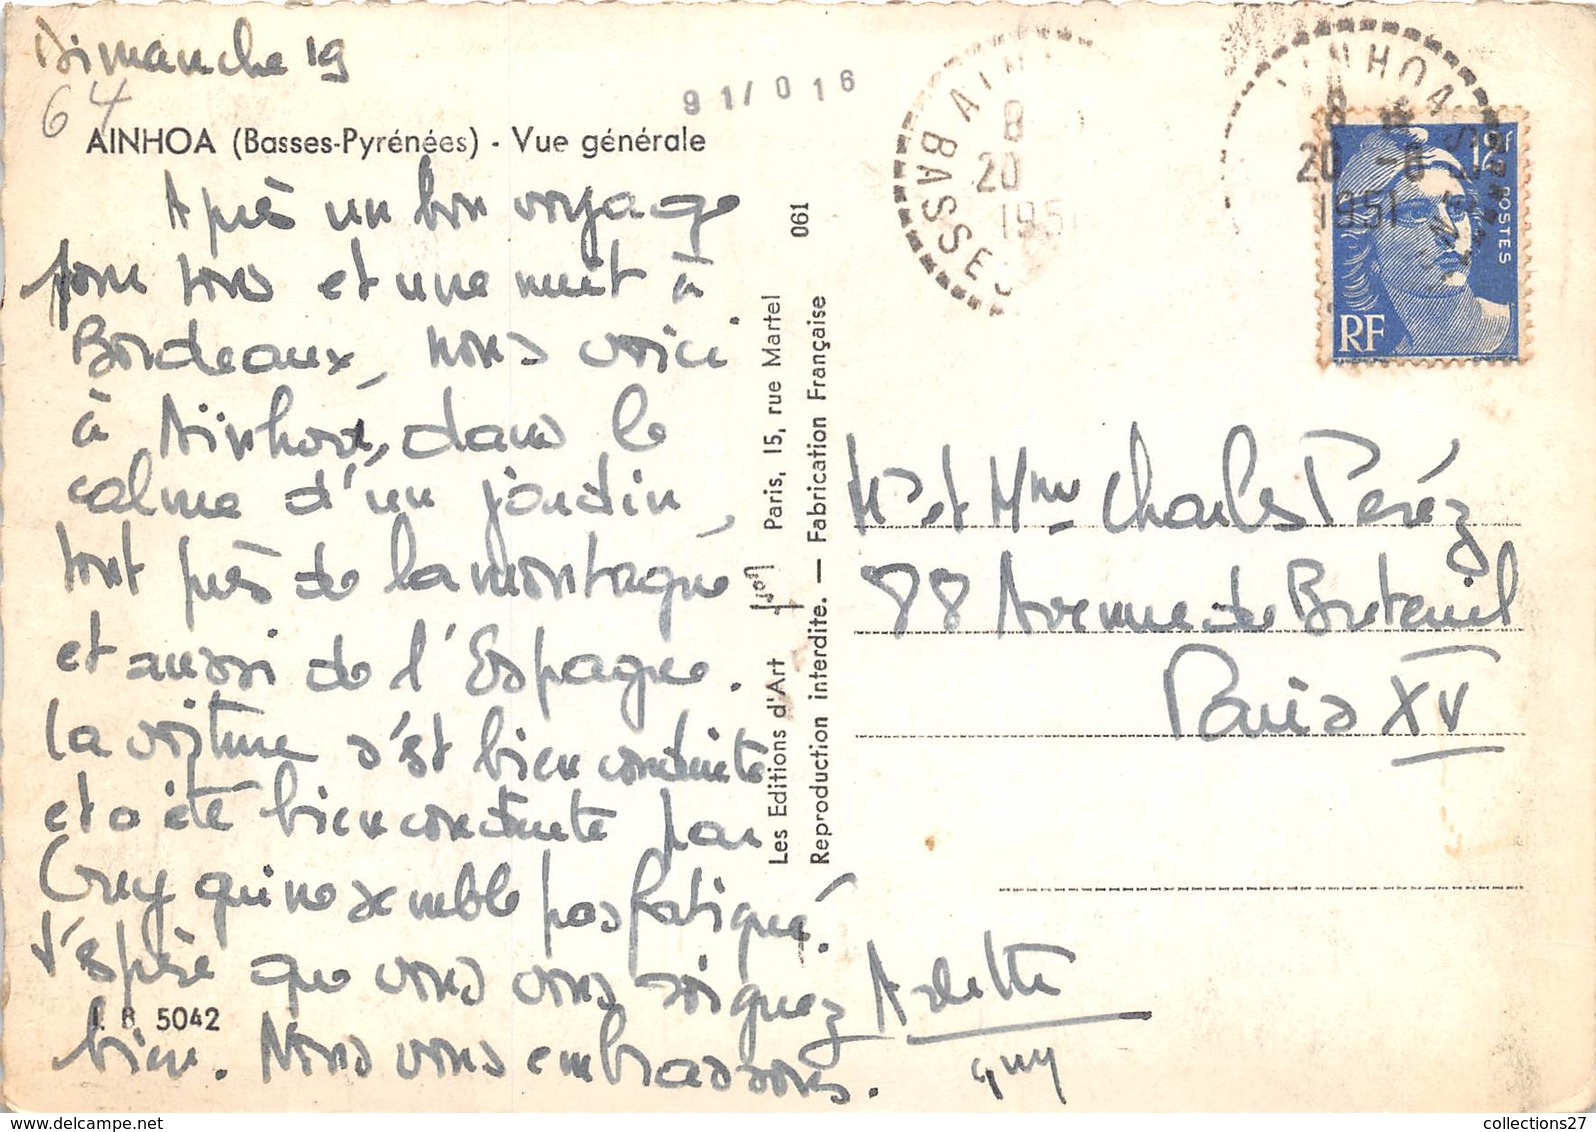 Dimanche 19
64
91/016
AINHOA (Basses-Pyrénées) - Vue générale
Après un bon voyage
pour tous et une nuit à
Bordeaux, nous voici
à Aïnhoa, dans le
calme d'un jardin,
tout près de la montagne
et aussi de l'Espagne.
La voiture s'est bien conduite
et a été bien conduite par
Guy qui ne semble pas fatigué.
J'espère que vous vous soignez
bien. Nous vous embrassons.
Arlette
guy
5042
061
Les Editions d'Art Paris, 15, rue Martel
Reproduction interdite. — Fabrication Française
BASSES
8
20
195
AINHOA
8
20 -8
1951
12f
POSTES
RF
Mr et Mme Charles Peréz
88 Avenue de Breteuil
Paris XV
collections27